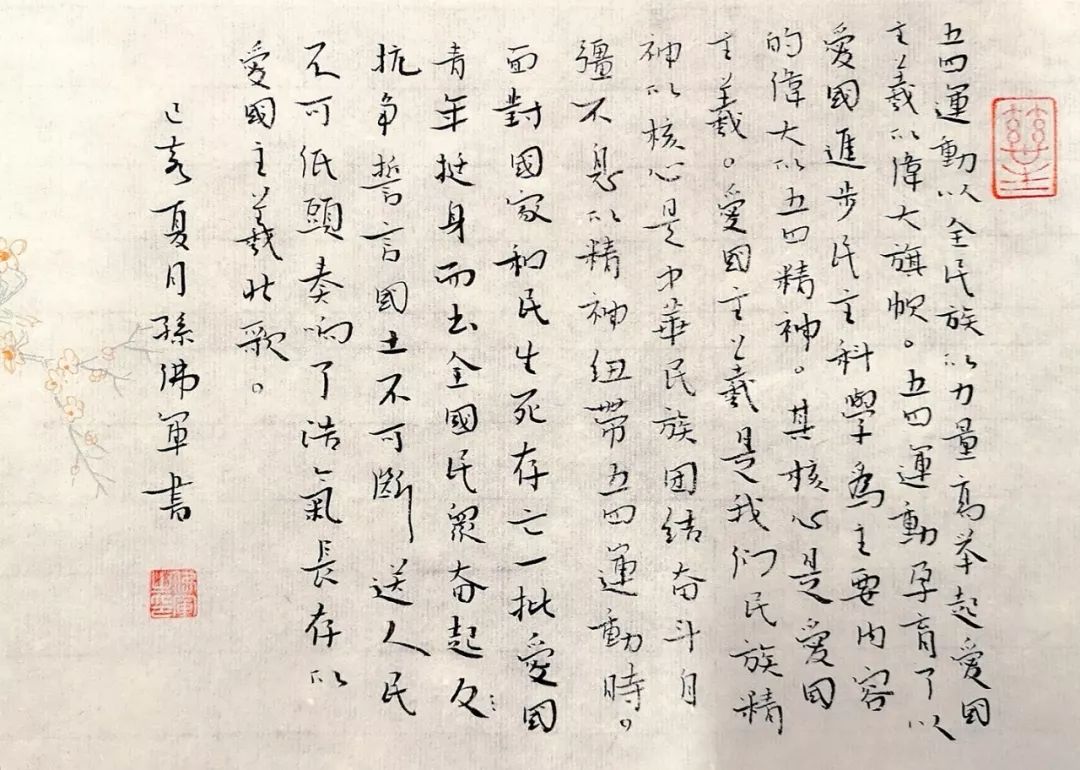 五四運動以全民族的力量高举起愛国
主義的偉大旗帜。五四運動孕育了以
愛國進步民主科學為主要内容
的偉大的五四精神。其核心是愛国
主義。愛国主義是我们民族精
神的核心是中華民族团结奋斗自
彊不息的精神纽帶五四運動時。
面對國家和民生死存亡一批愛国
青年挺身而出全國民眾奋起反
抗争誓言國土不可斷送人民
不可低頭奏响了浩氣長存的
愛國主義壮歌。
己亥夏月孫佛軍書